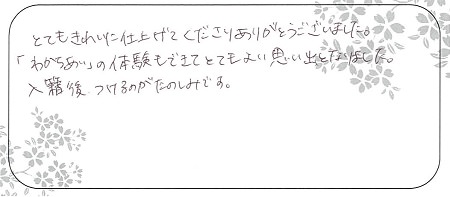 とてもきれいに仕上げてくださりありがとうございました。
「わかちあい」の体験もできてとてもよい思い出となりました。
入籍後、つけるのがたのしみです。